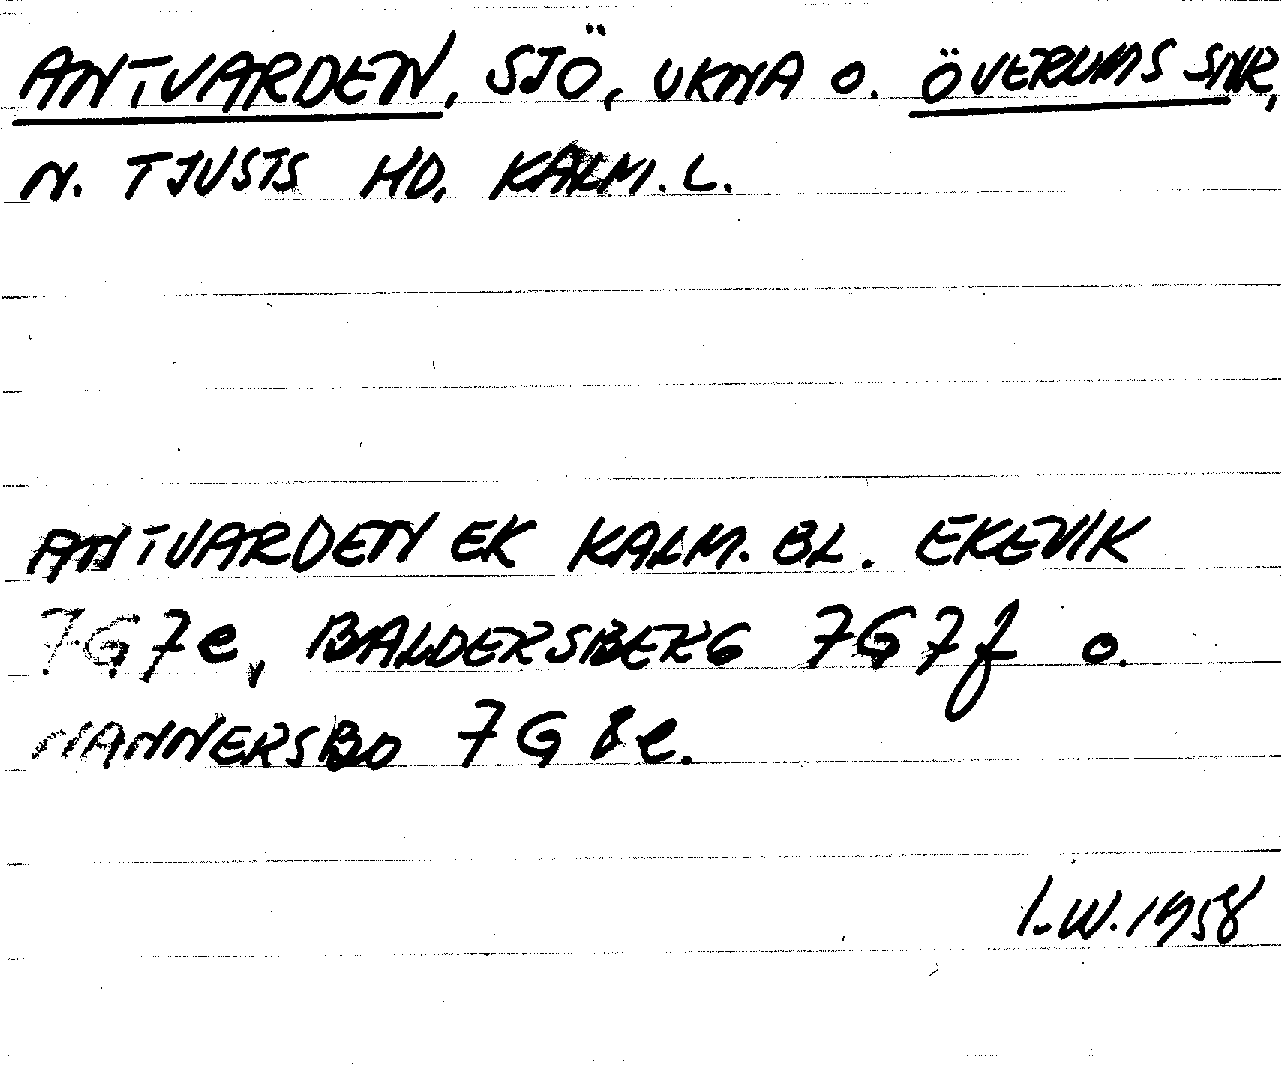 ANTVARDEN, SJÖ, UKNA O. ÖVERUMS SNR,
N. TJUSTS HD. KALM. L.
ANTVARDEN EK KALM. BL. EKEVIK
7G7e, BALDERSBERG 7G7f O.
NANNERSBO 7G8e.
I.W. 1958